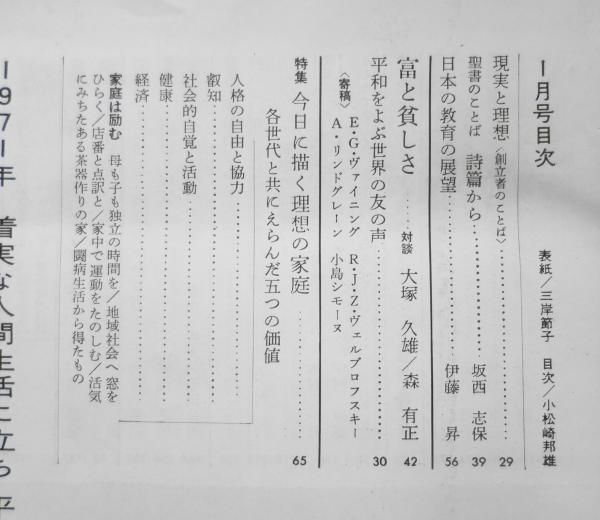 1月号目次
表紙／三岸節子　目次／小松崎邦雄
現実と理想〈創立者のことば〉…………29
聖書のことば　詩篇から…………坂西　志保　39
日本の教育の展望…………伊藤　昇　56
富と貧しさ……対談　大塚　久雄／森　有正　42
平和をよぶ世界の友の声…………30
〈寄稿〉　E・G・ヴァイニング　R・J・Z・ヴェルブロフスキー
A・リンドグレーン　小島シモーヌ
特集　今日に描く理想の家庭…………65
各世代と共にえらんだ五つの価値
人格の自由と協力…………
叡知…………
社会的自覚と活動…………
健康…………
経済…………
家庭は励む　母も子も独立の時間を／地域社会へ窓を
ひらく／店番と点訳と／家中で運動をたのしむ／活気
にみちたある茶器作りの家／闘病生活から得たもの
1971年　着実な人間生活に立ち　平